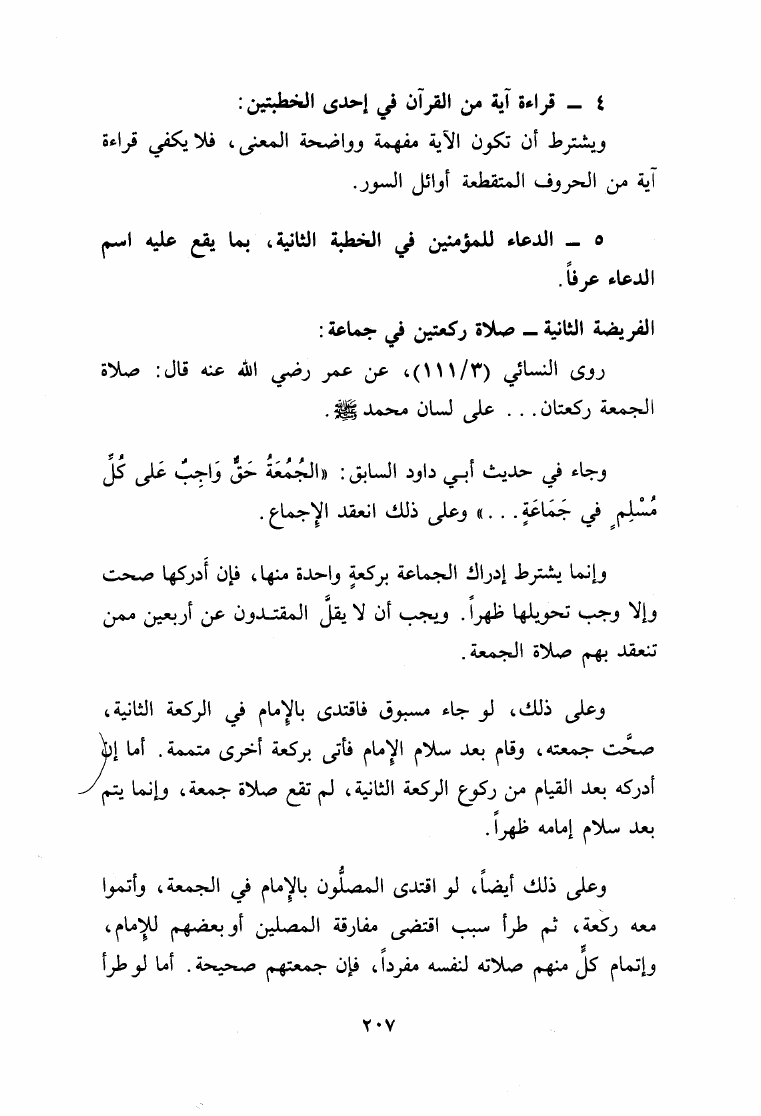 ٤ ــ قراءة آية من القرآن في إحدى الخطبتين:
ويشترط أن تكون الآية مفهمة وواضحة المعنى، فلا يكفي قراءة
آية من الحروف المتقطعة أوائل السور.
٥ ــ الدعاء للمؤمنين في الخطبة الثانية، بما يقع عليه اسم
الدعاء عرفاً.
الفريضة الثانية ــ صلاة ركعتين في جماعة:
روى النسائي (١١١/٣)، عن عمر رضي الله عنه قال: صلاة
الجمعة ركعتان... على لسان محمد ﷺ.
وجاء في حديث أبي داود السابق: «الجُمُعَةُ حَقٌّ وَاجِبٌ عَلى كُلِّ
مُسْلِمٍ في جَمَاعَةٍ...» وعلى ذلك انعقد الإجماع.
وإنما يشترط إدراك الجماعة بركعةٍ واحدة منها، فإن أَدركها صحت
وإلا وجب تحويلها ظهراً. ويجب أن لا يقلَّ المقتدون عن أربعين ممن
تنعقد بهم صلاة الجمعة.
وعلى ذلك، لو جاء مسبوق فاقتدى بالإمام في الركعة الثانية،
صحَّت جمعته، وقام بعد سلام الإمام فأتى بركعة أخرى متممة. أما إن
أدركه بعد القيام من ركوع الركعة الثانية، لم تقع صلاة جمعة، وإنما يتم
بعد سلام إمامه ظهراً.
وعلى ذلك أيضاً، لو اقتدى المصلُّون بالإمام في الجمعة، وأتموا
معه ركعة، ثم طرأ سبب اقتضى مفارقة المصلين أو بعضهم للإمام،
وإتمام كلٍّ منهم صلاته لنفسه مفرداً، فإن جمعتهم صحيحة. أما لو طرأ
٢٠٧